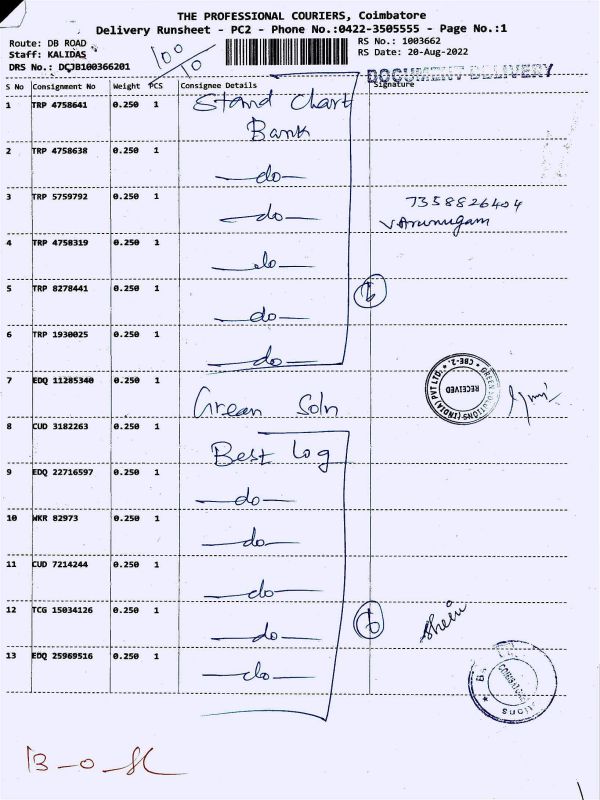 THE PROFESSIONAL COURIERS, Coimbatore
Delivery Runsheet - PC2 - Phone No.:0422-3505555 - Page No.:1
Route: DB ROAD
Staff: KALIDAS
DRS No.: DCJB100366201
100
10
RS No.: 1003662
RS Date: 20-Aug-2022
DOCUMENT DELIVERY
S No Consignment No Weight PCS Consignee Details Signature
1 TRP 4758641 0.250 1 Stand Chart
Bank
2 TRP 4758638 0.250 1 —do—
3 TRP 5759792 0.250 1 —do— 7358826404
V Arumugam
4 TRP 4758319 0.250 1 —do—
5 TRP 8278441 0.250 1 —do— 6
6 TRP 1930025 0.250 1 —do—
7 EDQ 11285340 0.250 1 Green Soln
GREEN SOLUTIONS (INDIA) PVT LTD. * CBE-2. *
RECEIVED
8 CUD 3182263 0.250 1 Best Log
9 EDQ 22716597 0.250 1 —do—
10 WKR 82973 0.250 1 —do—
11 CUD 7214244 0.250 1 —do—
12 TCG 15034126 0.250 1 —do— 6
13 EDQ 25969516 0.250 1 —do—